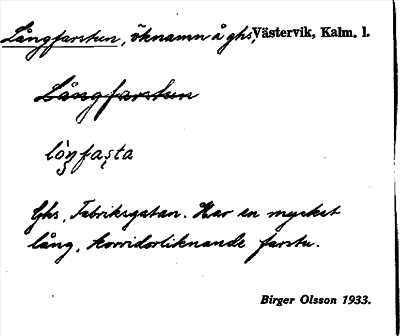 Långfarstun, öknamn å ghs, Västervik, Kalm. l.
Långfarstun
lòŋfaṣta
Ghs, Fabriksgatan. Har en mycket
lång, korridorliknande farstu.
Birger Olsson 1933.